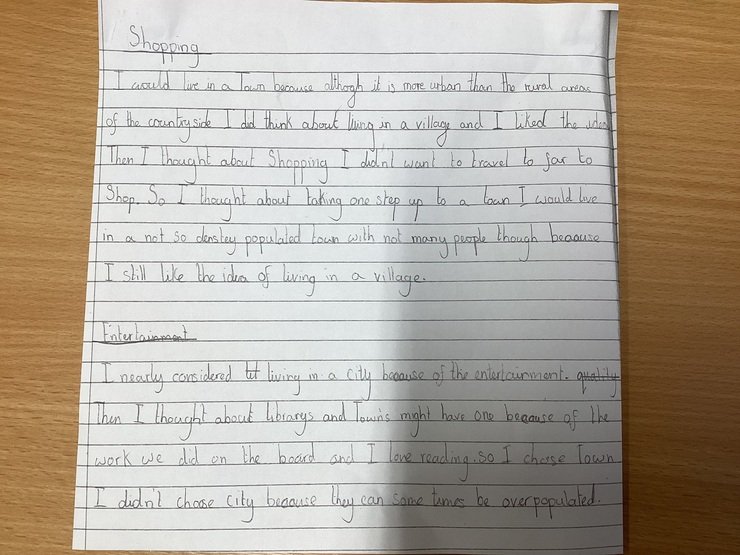 Shopping
I would live in a Town because althogh it is more urban than the rural areas
of the countryside I did think about living in a village and I liked the idea
Then I thought about Shopping I didn't want to travel to far to
Shop. So I thought about taking one step up to a town I would live
in a not so denstey populated town with not many people though because
I still like the idea of living in a village.
Entertainment
I nearly considered living in a city because of the entertainment. quality
Then I thought about librarys and Towns might have one because of the
work we did on the board and I love reading. so I chose Town
I didn't chose city because they can some times be overpopulated.